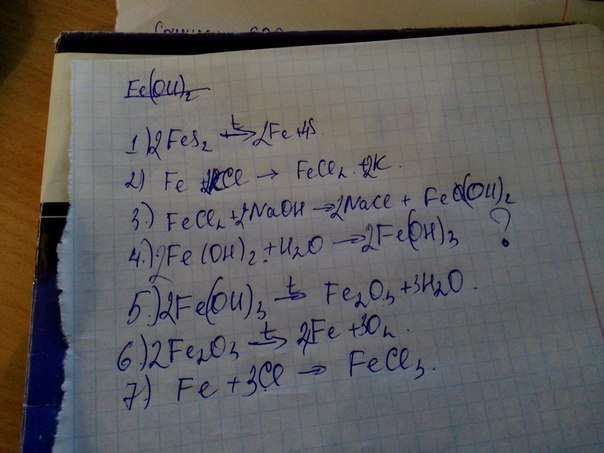 Fe(OH)₂
1) 2FeS₂ →t 2Fe+4S.
2) Fe + 2KCl → FeCl₂ + 2K.
3.) FeCl₂ + 2NaOH → 2NaCl + Fe(OH)₂
4.) 2Fe(OH)₂ + H₂O → 2Fe(OH)₃ ?
5.) 2Fe(OH)₃ →t Fe₂O₃ + 3H₂O.
6) 2Fe₂O₃ →t 2Fe + 3O₂.
7) Fe + 3Cl → FeCl₃.